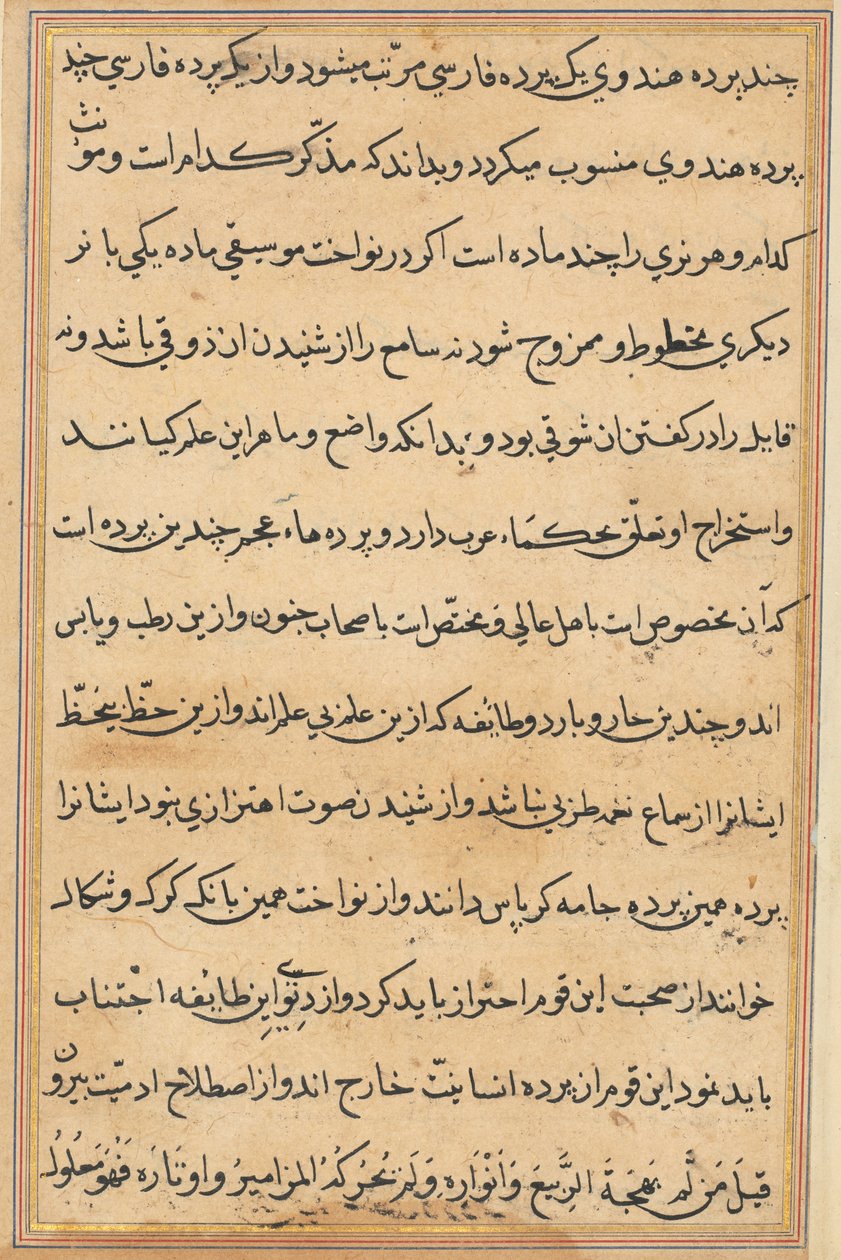 چند پرده هندوي يك پرده فارسي مرتّب ميشود واز يك پرده فارسي چند
پرده هندوي منسوب ميكردد و بداند كه مذكّر كدام است و مؤنث
كدام و هر نري را چند ماده است اكر در نواخت موسيقي ماده يكي با نر
ديكري مخطوط و ممزوج شود نه سامع را از شنيدن ان ذوقي باشد و نه
قايل را در كفتن ان شوقي بود و بدانكه واضع و ماهر اين علم كيانند
و استخراج او تعلّق بحكماء عرب دارد و پرده هاء عجم چندين پرده است
كه آن مخصوص است باهل عالي و مختصّ است باصحاب جنون و ازين رطب و يابس
اند و چندين حار و بارد و طائفه كه ازين علم بي علم اند و ازين حظّ بيحظّ
ايشانرا از سماع نغمه طربي نباشد و از شنيدن صوت اهتزازي نبود ايشانرا
پرده همين پرده جامه كرباس دانند و از نواخت همين بانك كرك و شكال
خوانند از صحبت اين قوم احتراز بايد كرد و از اين طايفه اجتناب
بايد نمود اين قوم از پرده انسانيتّ خارج اند و از اصطلاح ادميّت بيرون
قيلَ مَن لَم بَهجَةَ الرَّبيعَ وَاَنْوَارِه وَلَم يُحرّكهُ المزاميرُ واوتَارَه فَهُوَ مَعْلُولُ